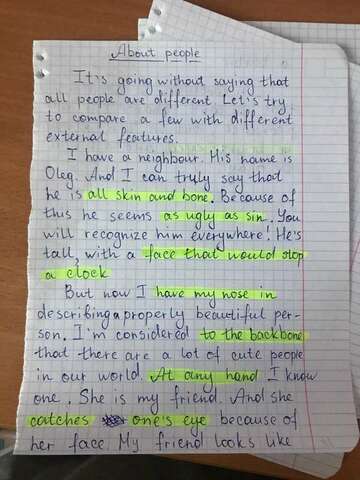 About people
It's going without saying that
all people are different. Let's try
to compare a few with different
external features.
I have a neighbour. His name is
Oleg. And I can truly say that
he is all skin and bone. Because of
this he seems as ugly as sin. You
will recognize him everywhere! He's
tall, with a face that would stop
a clock
But now I have my nose in
describing a properly beautiful per-
son. I'm considered to the backbone
that there are a lot of cute people
in our world. At any hand I know
one. She is my friend. And she
catches one's eye because of
her face. My friend looks like